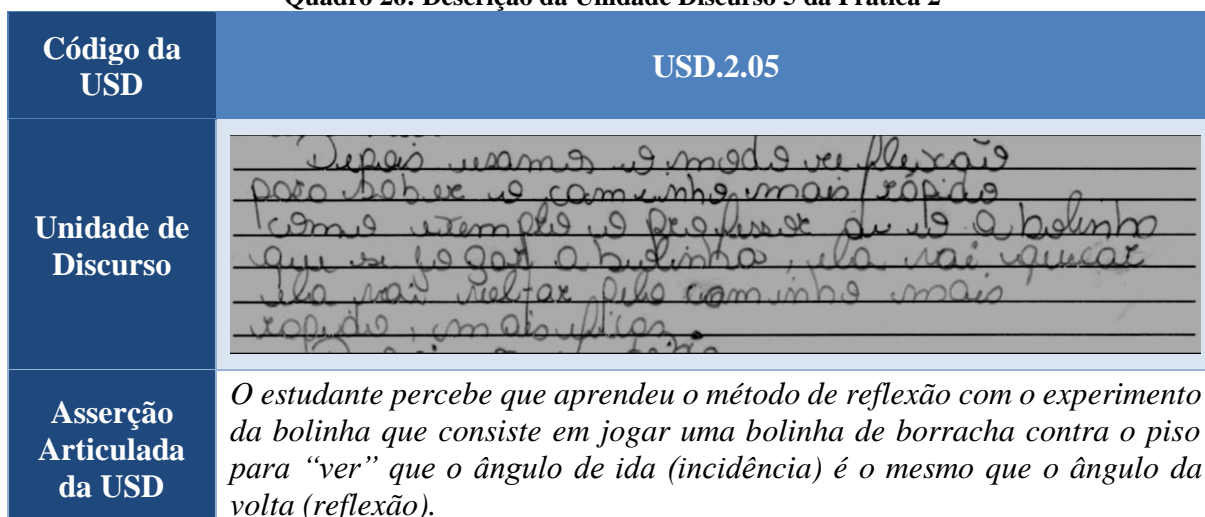 Quadro 20: Descrição da Unidade Discurso 5 da Prática 2
Código da
USD
USD.2.05
Unidade de
Discurso
Depois usamos o modo reflexão
para saber o caminho mais rápido
como exemplo o professor deu a bolinha
que se jogar a bolinha, ela vai quicar
ela vai voltar pelo caminho mais
rapido,
Asserção
Articulada
da USD
O estudante percebe que aprendeu o método de reflexão com o experimento
da bolinha que consiste em jogar uma bolinha de borracha contra o piso
para “ver” que o ângulo de ida (incidência) é o mesmo que o ângulo da
volta (reflexão).